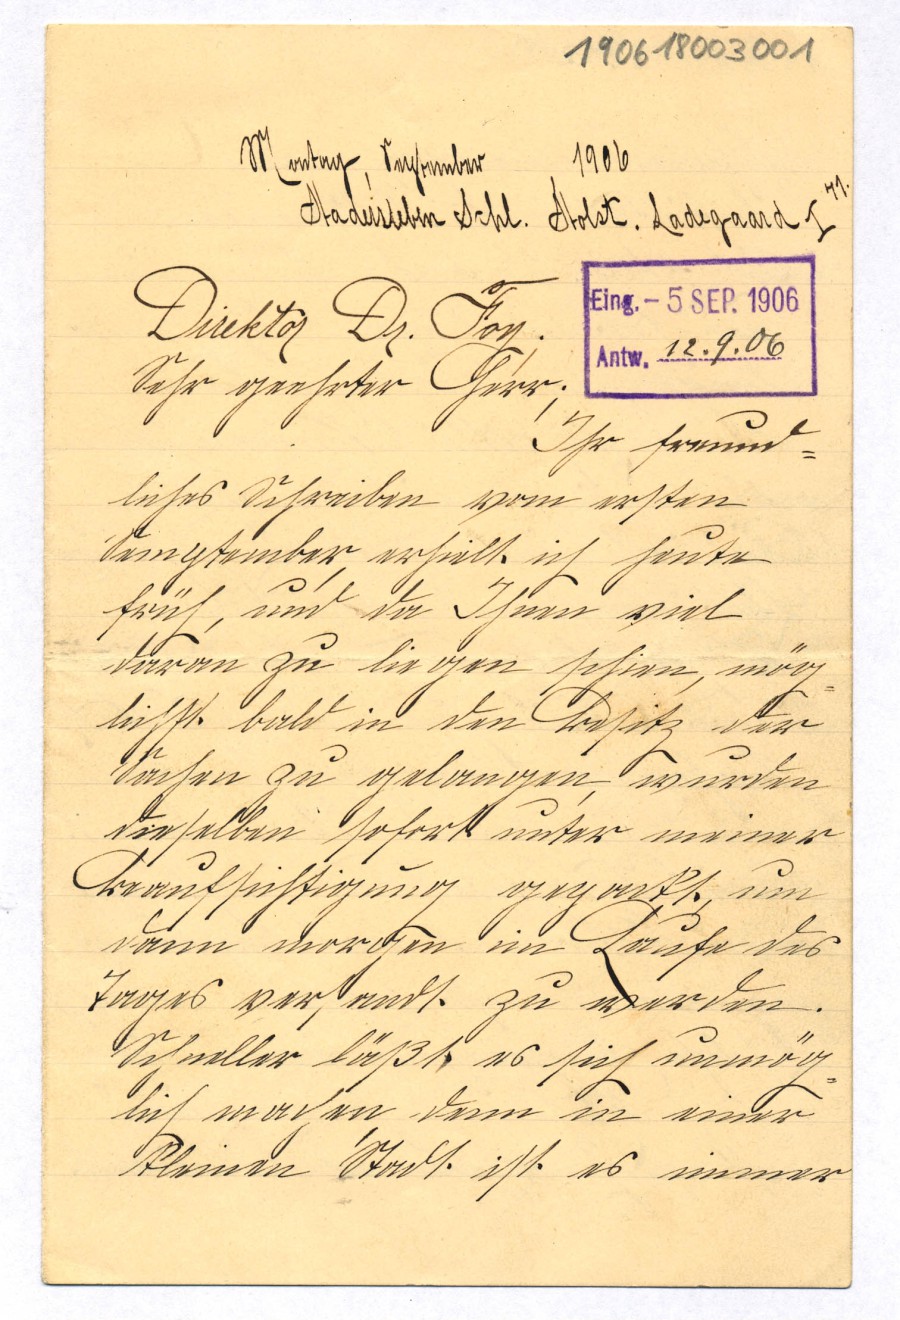 190618003001
Montag, September 1906
Hadersleben Schl. Holst. Ladegaard I
Direktor Dr. Foy.
Eing. - 5 SEP. 1906
Antw. 12.9.06
Sehr geehrter Herr;
Ihr freund=
liches Schreiben vom ersten
Semptember erhielt ich heute
früh, und da Ihnen viel
daran zu liegen schien, mög=
lichst bald in den Besitz der
Sachen zu gelangen, wurden
dieselben sofort unter meiner
Beaufsichtigung gepackt, um
dann morgen im Laufe des
Tages versandt zu werden.
Schneller läßt es sich unmög=
lich machen denn in einer
kleinen Stadt ist es immer